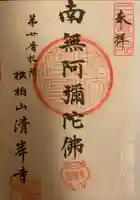 奉拝
南無阿彌陀佛
第廿番札所
松柏山清岸寺